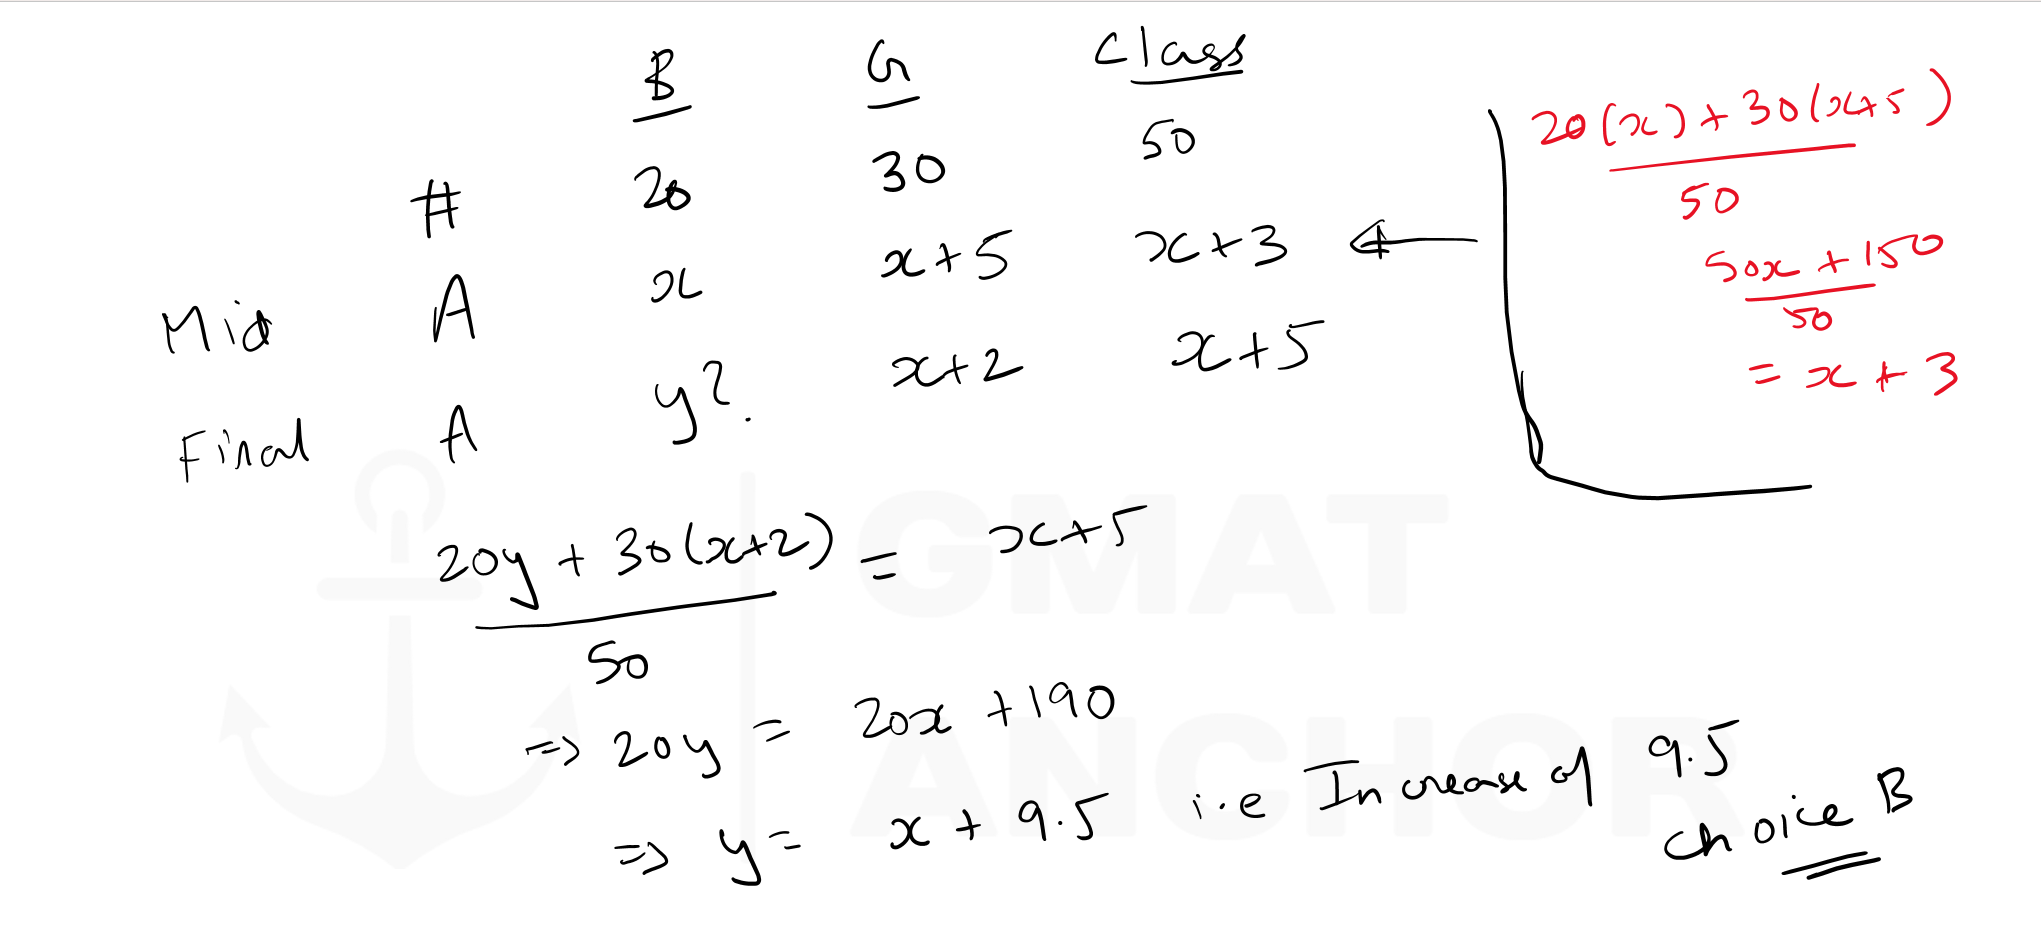 B G Class
# 20 30 50
Mid A x x+5 x+3
Final A y? x+2 x+5
20(x) + 30(x+5)
50
50x + 150
50
= x + 3
20y + 30(x+2) = x+5
50
=> 20y = 20x + 190
=> y = x + 9.5 i.e Increase of 9.5
Choice B
GMAT
ANCHOR